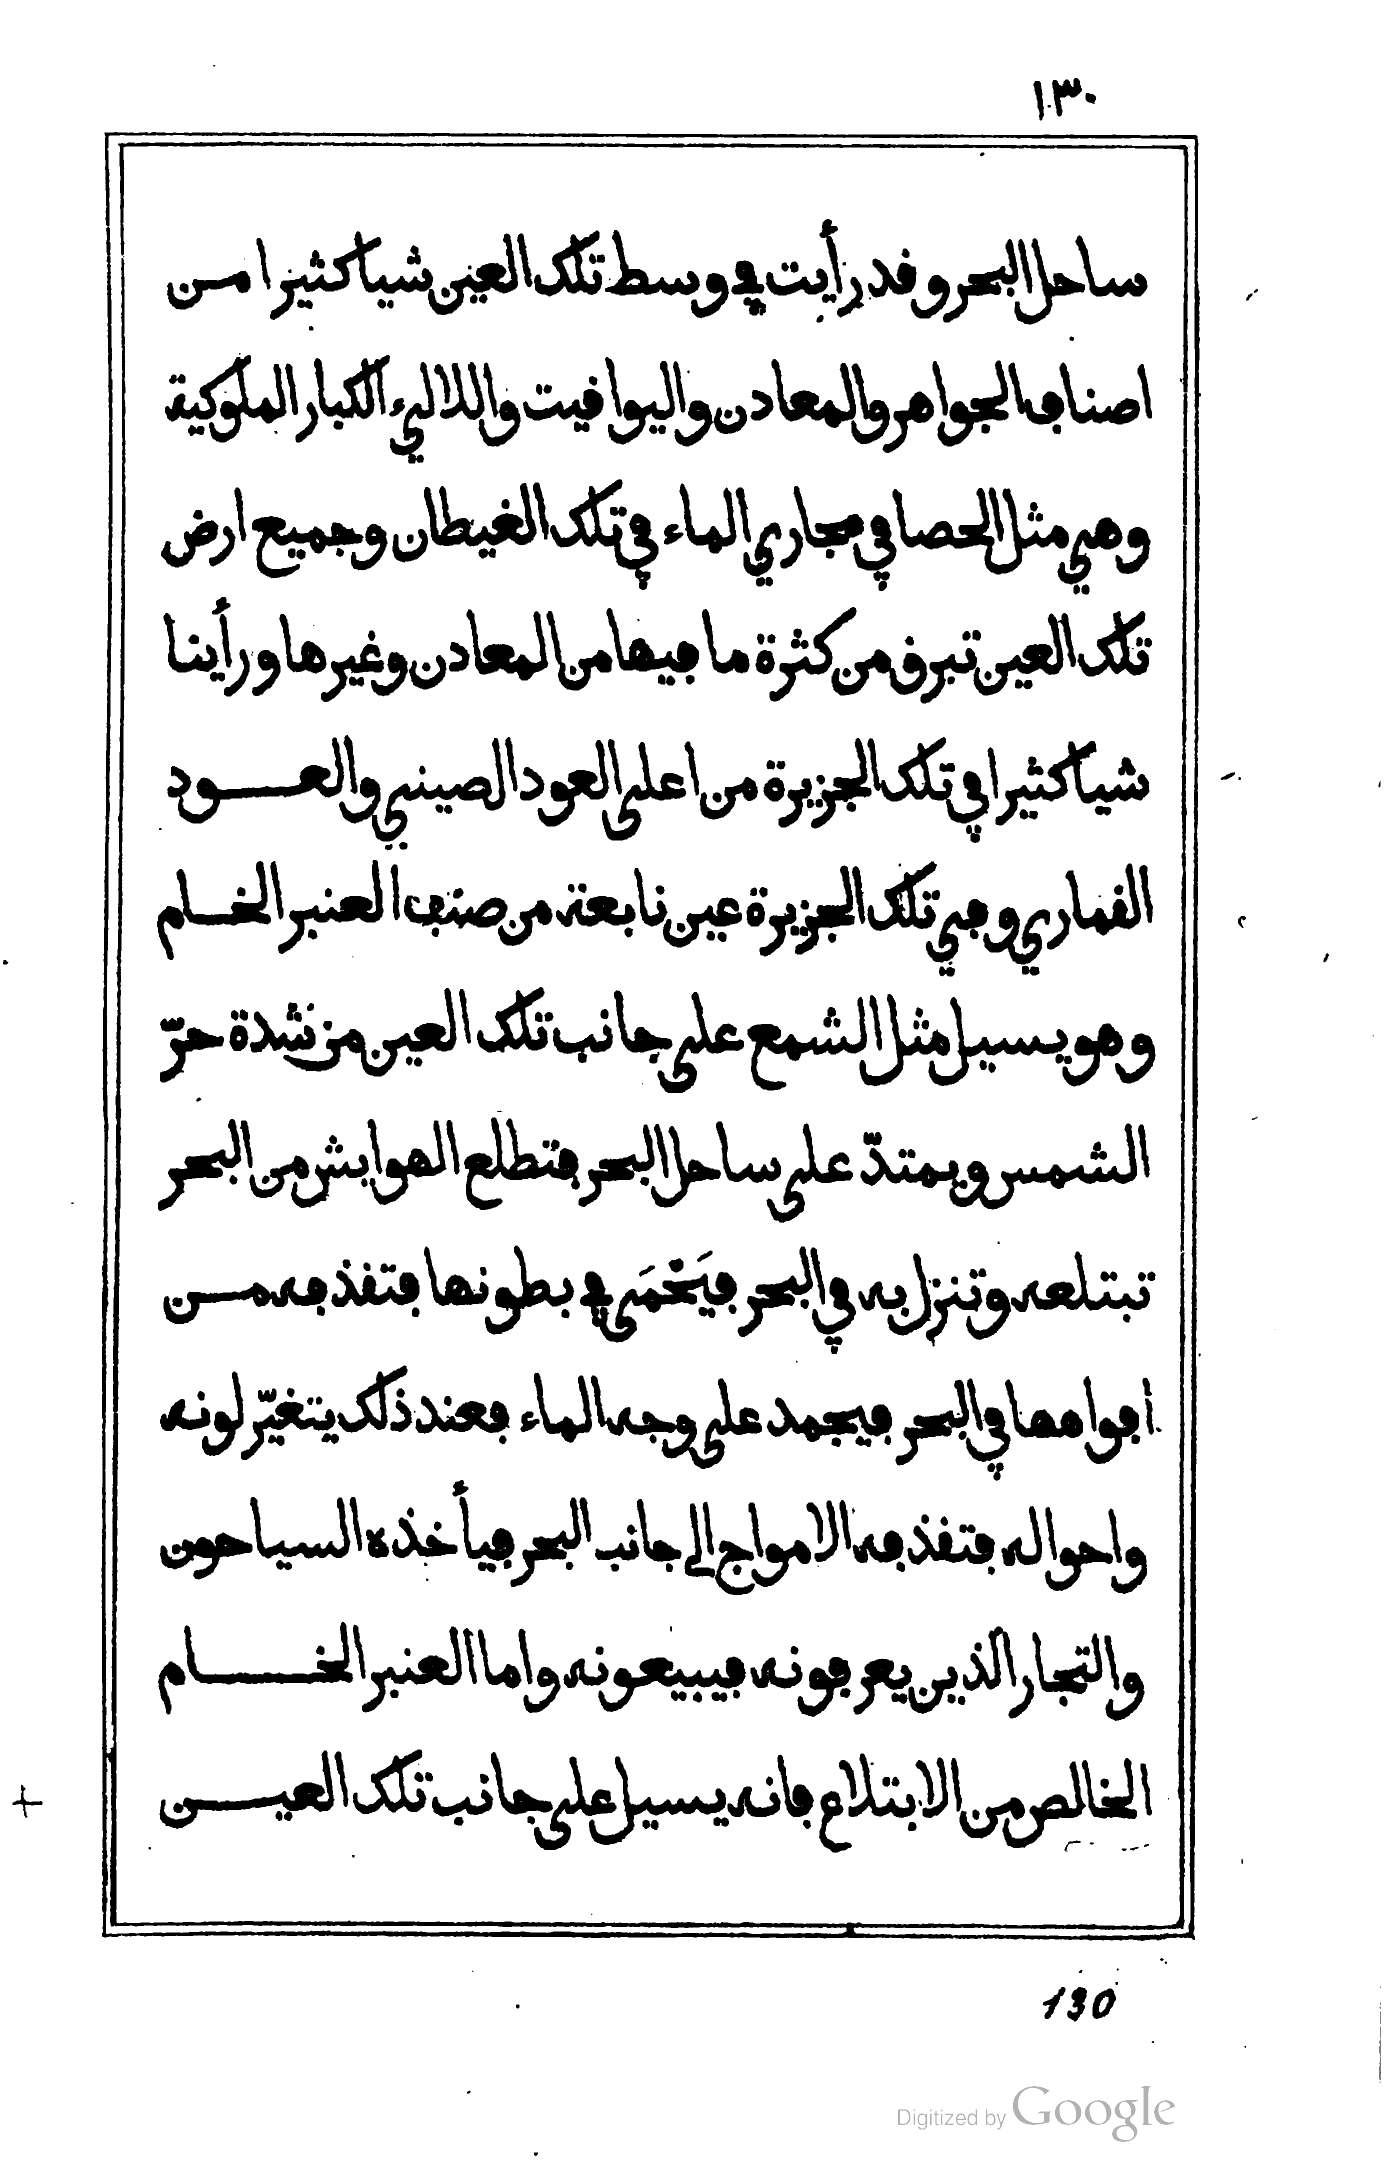 ١٣٠
ساحل البحر وقد رأيت في وسط تلك العين شيا كثيرا من
اصناف الجواهر والمعادن واليواقيت واللالىء الكبار الملوكية
وهي مثل الحصا في مجاري الماء في تلك الغيطان وجميع ارض
تلك العين تبرق من كثرة ما فيها من المعادن وغيرها ورأينا
شيا كثيرا في تلك الجزيرة من اعلى العود الصيني والعود
القماري وفي تلك الجزيرة عين نابعة من صنف العنبر الخام
وهو يسيل مثل الشمع على جانب تلك العين من شدة حرّ
الشمس ويمتدّ على ساحل البحر فتطلع الهوايش من البحر
تبتلعه وتنزل به في البحر فيَحْمَى في بطونها فتقذفه من
أفواهها في البحر فيجمد على وجه الماء فعند ذلك يتغيّر لونه
واحواله فتقذفه الامواج الى جانب البحر فيأخذه السياحون
والتجار الذين يعرفونه فيبيعونه واما العنبر الخام
الخالص من الابتلاع فانه يسيل على جانب تلك العين
130
Digitized by Google